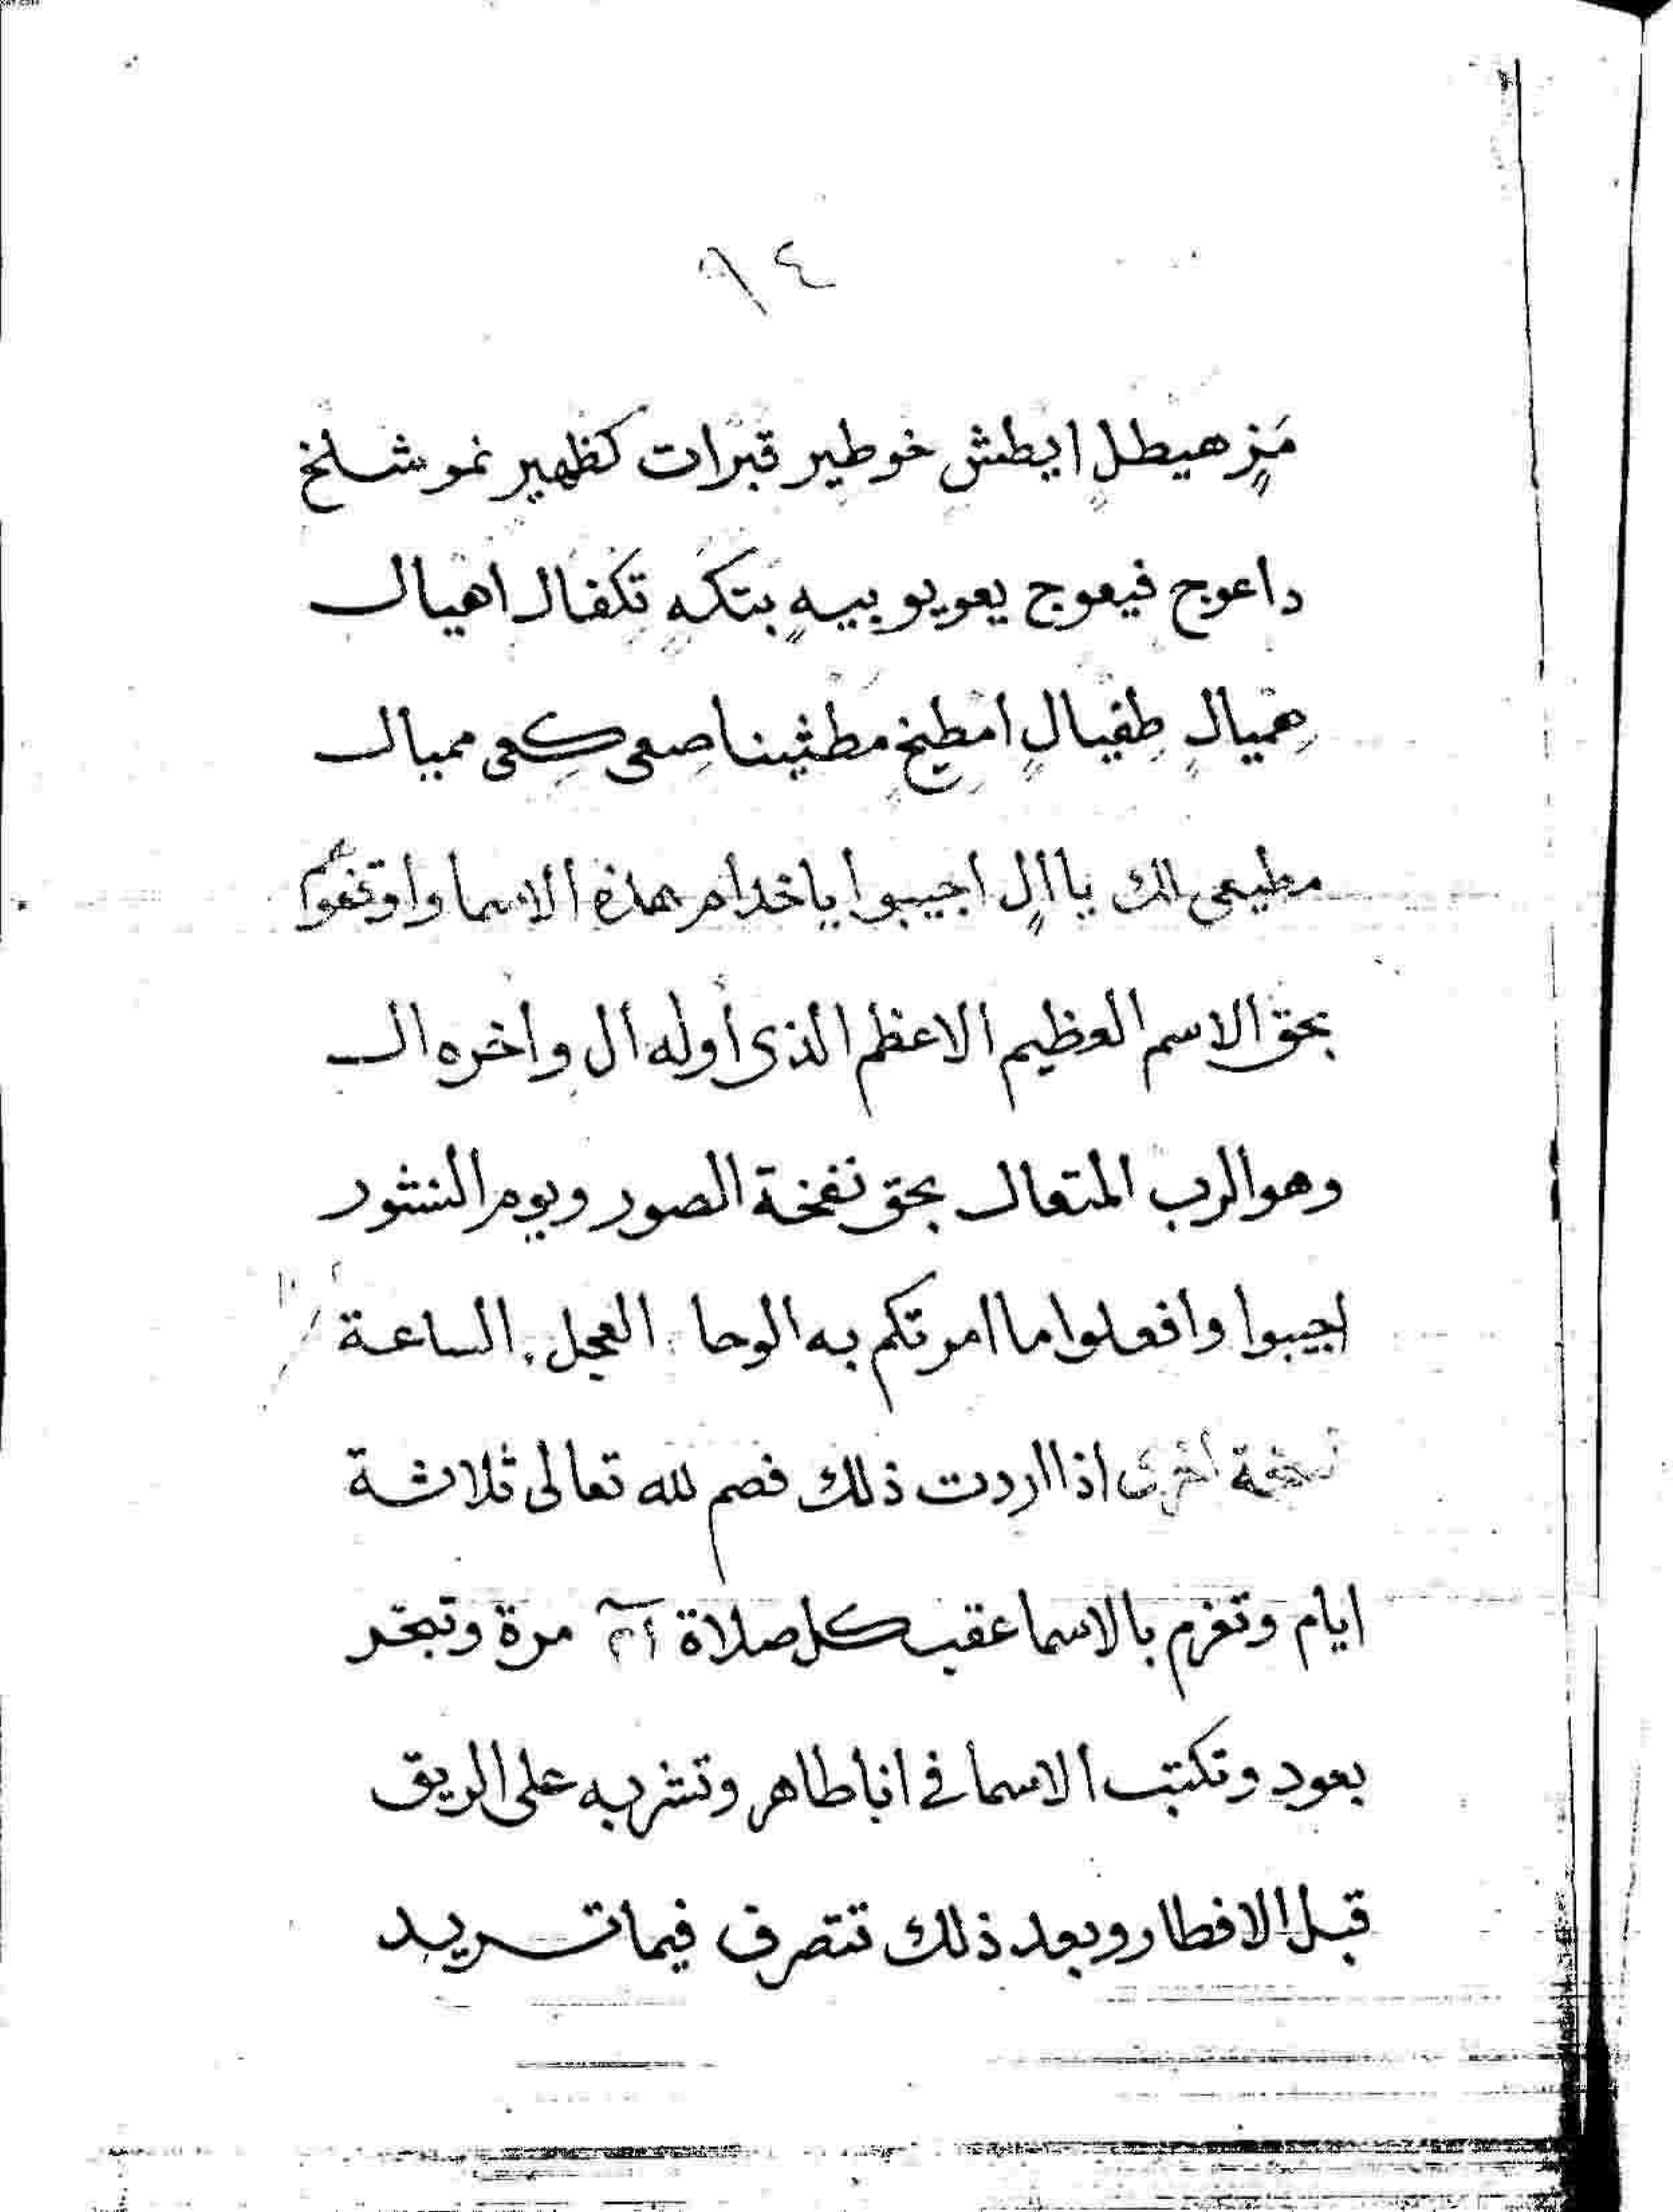 ٩٤
مَزٍ هيطلٍ ايطش خوطير قبرات كظهير نمو شلخ
داعوج فيعوج يعويو بيهٍ بتكهٍ تكفال اهيال
هميالٍ طفيالٍ امطيخٍ مطثينا صعى كعى مميال
مطيعى لك ياالٍ اجيبوا ياخدام هذه الاسما
بحق الاسم العظيم الاعظم الذى أوله ال واخره ال
وهو الرب المتعال بحق نفخة الصور ويوم النشور
اجيبوا وافعلوا ما امرتكم به الوحا العجل الساعة
نسخة اخرى اذا اردت ذلك فصم لله تعالى ثلاثة
ايام وتعزم بالاسما عقب كل صلاة مرة وتبخر
بعود وتكتب الاسما فى انا طاهر وتشربه على الريق
قبل الافطار وبعد ذلك تتصرف فيما تريد